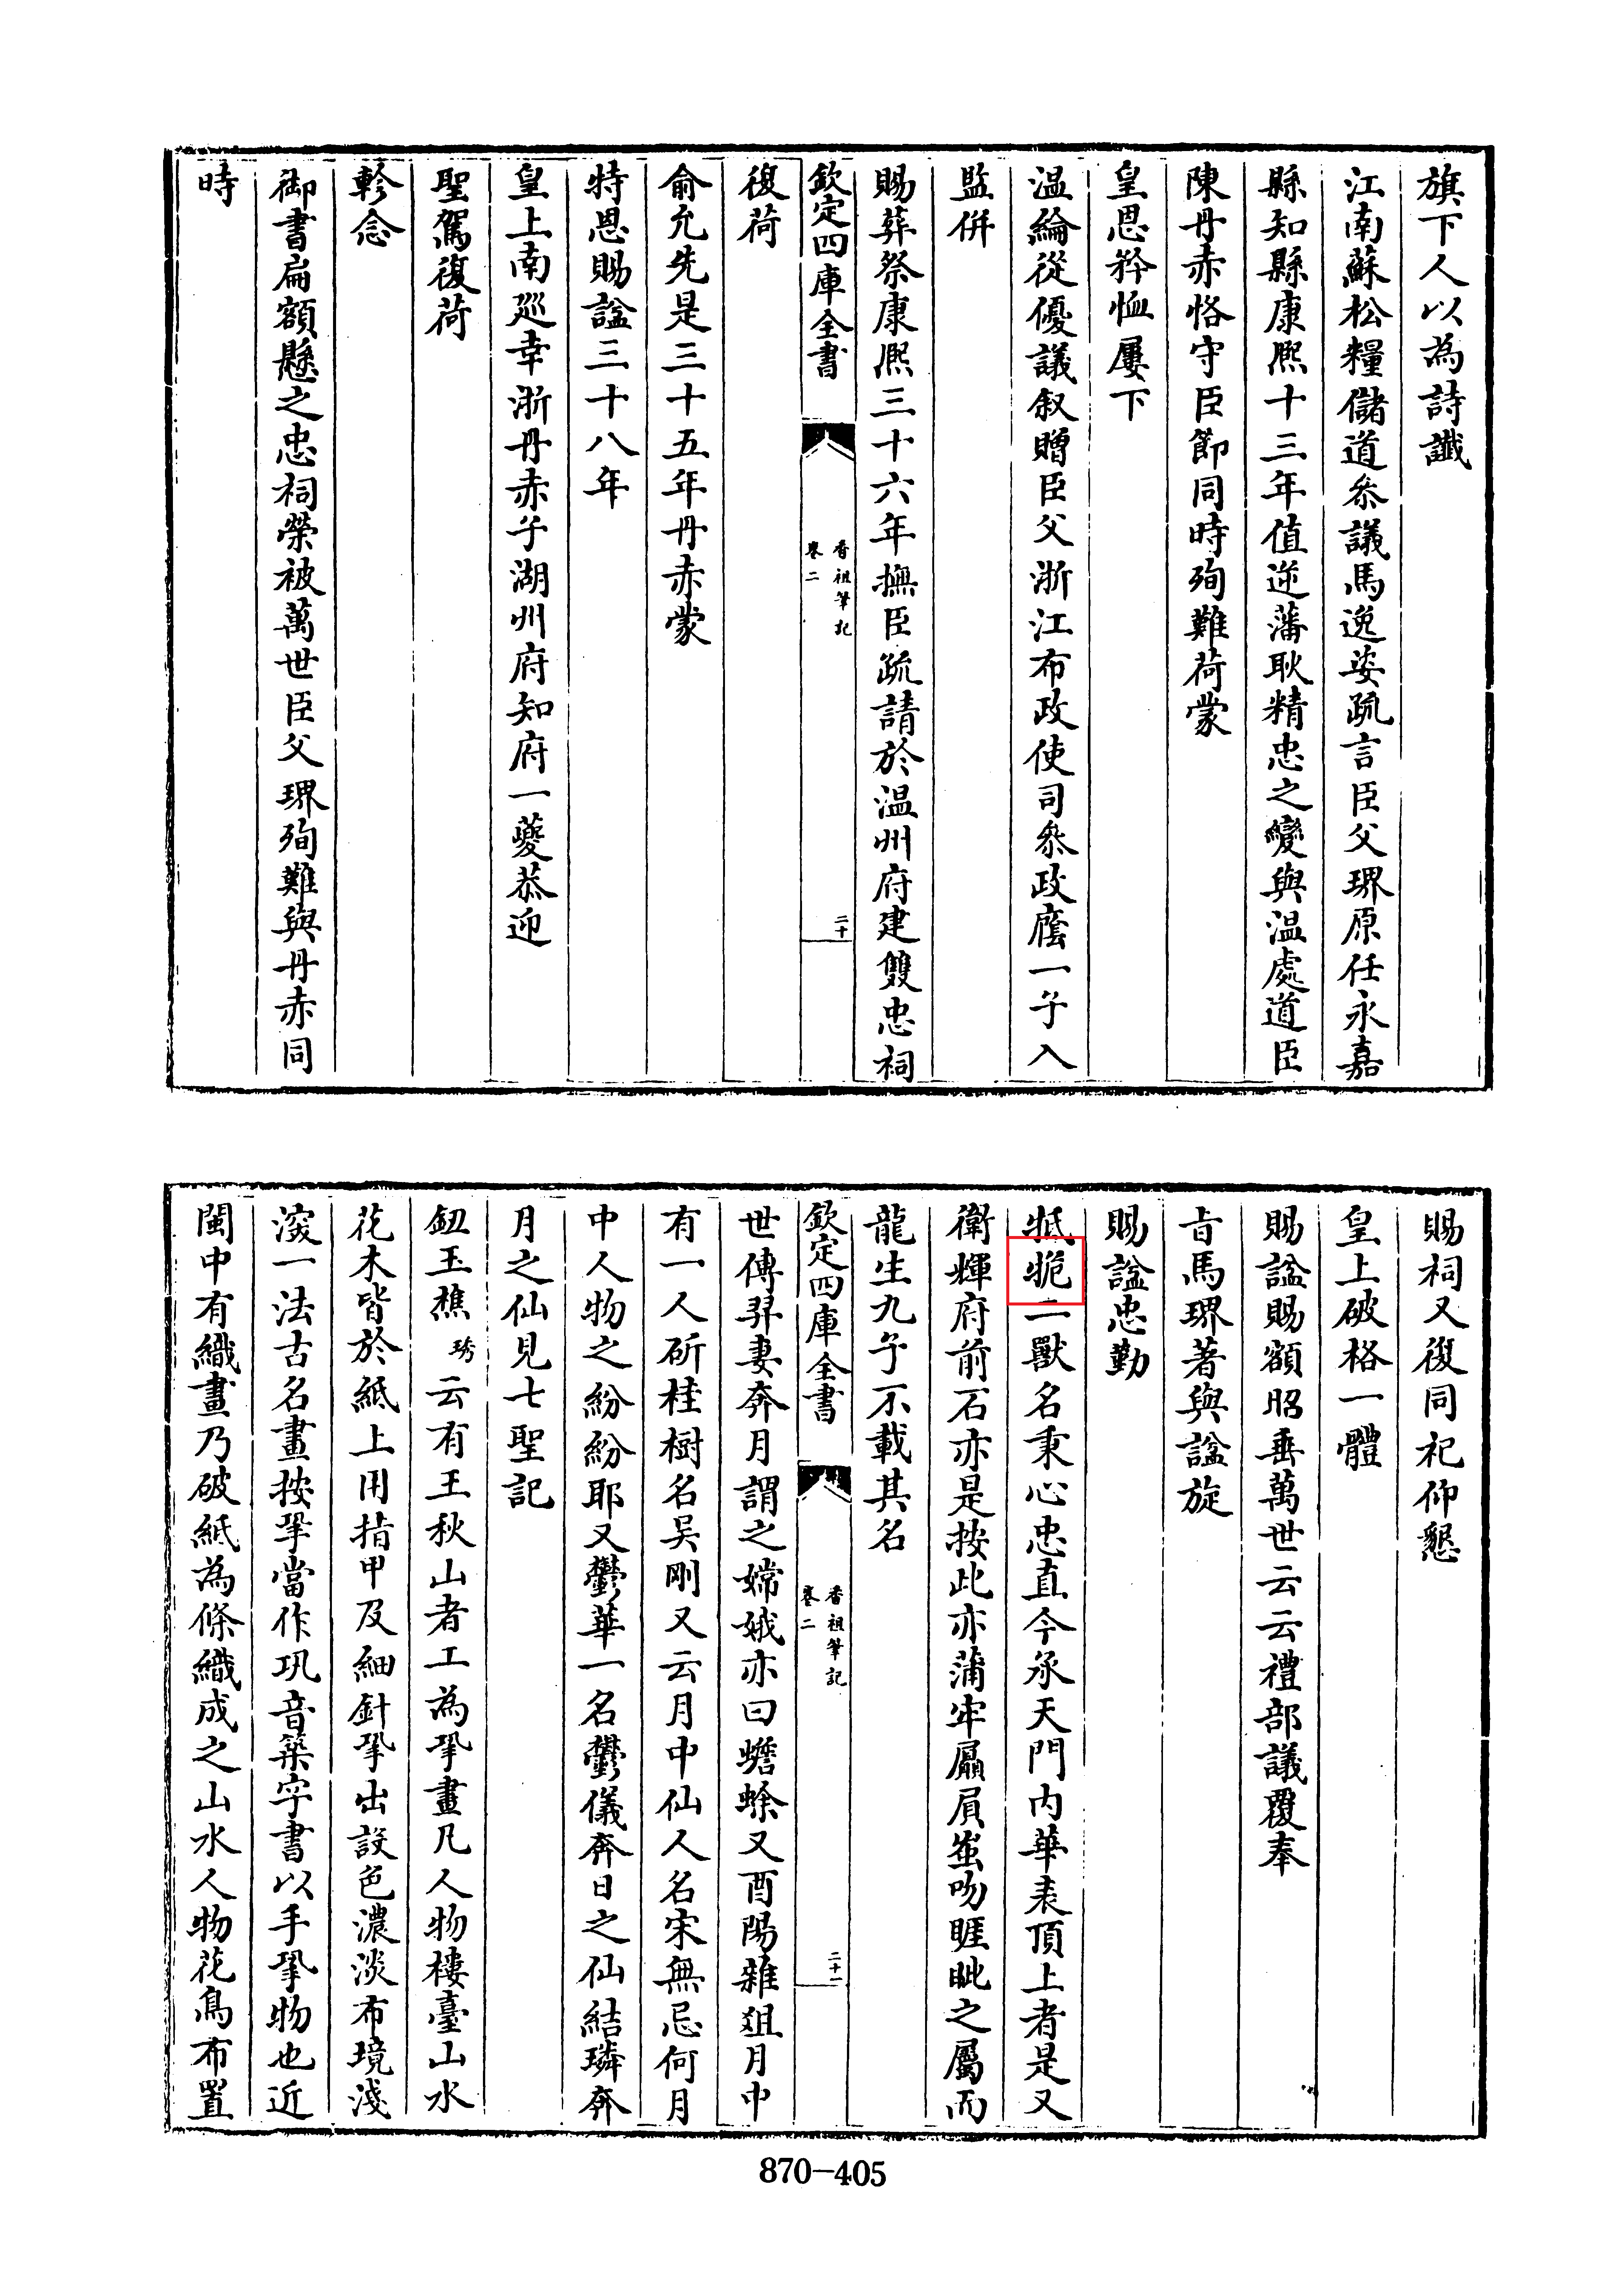 旗下人以為詩讖
江南蘇松糧儲道叅議馬逸姿疏言臣父琾原任永嘉
縣知縣康熈十三年值逆藩耿精忠之變與温處道臣
陳丹赤恪守臣節同時殉難荷蒙
皇恩矜恤屢下
温綸從優議叙贈臣父浙江布政使司叅政廕一子入
監併
賜葬祭康熈三十六年撫臣疏請於温州府建雙忠祠
欽定四庫全書
香祖筆記
卷二
二十
復荷
俞允先是三十五年丹赤蒙
特恩賜諡三十八年
皇上南廵幸浙丹赤子湖州府知府一夔恭迎
聖駕復荷
軫念
御書扁額懸之忠祠榮被萬世臣父琾殉難與丹赤同
時
賜祠又復同祀仰懇
皇上破格一體
賜諡賜額昭垂萬世云云禮部議覆奉
㫖馬琾著與諡旋
賜諡忠勤
牴㸵二獸名秉心忠直今承天門内華表頂上者是又
衛輝府前石亦是按此亦蒲牢屭屓蚩吻睚眦之屬而
龍生九子不載其名
欽定四庫全書
香祖筆記
卷二
二十一
世傳羿妻奔月謂之嫦娥亦曰蟾蜍又酉陽雜俎月中
有一人斫桂樹名吴剛又云月中仙人名宋無忌何月
中人物之紛紛耶又鬱華一名鬱儀奔日之仙結璘奔
月之仙見七聖記
鈕玉樵琇云有王秋山者工為㧬畫凡人物樓臺山水
花木皆於紙上用指甲及細針㧬出設色濃淡布境淺
深一法古名畫按㧬當作巩音築字書以手㧬物也近
閩中有織畫乃破紙為條織成之山水人物花鳥布置
870-405